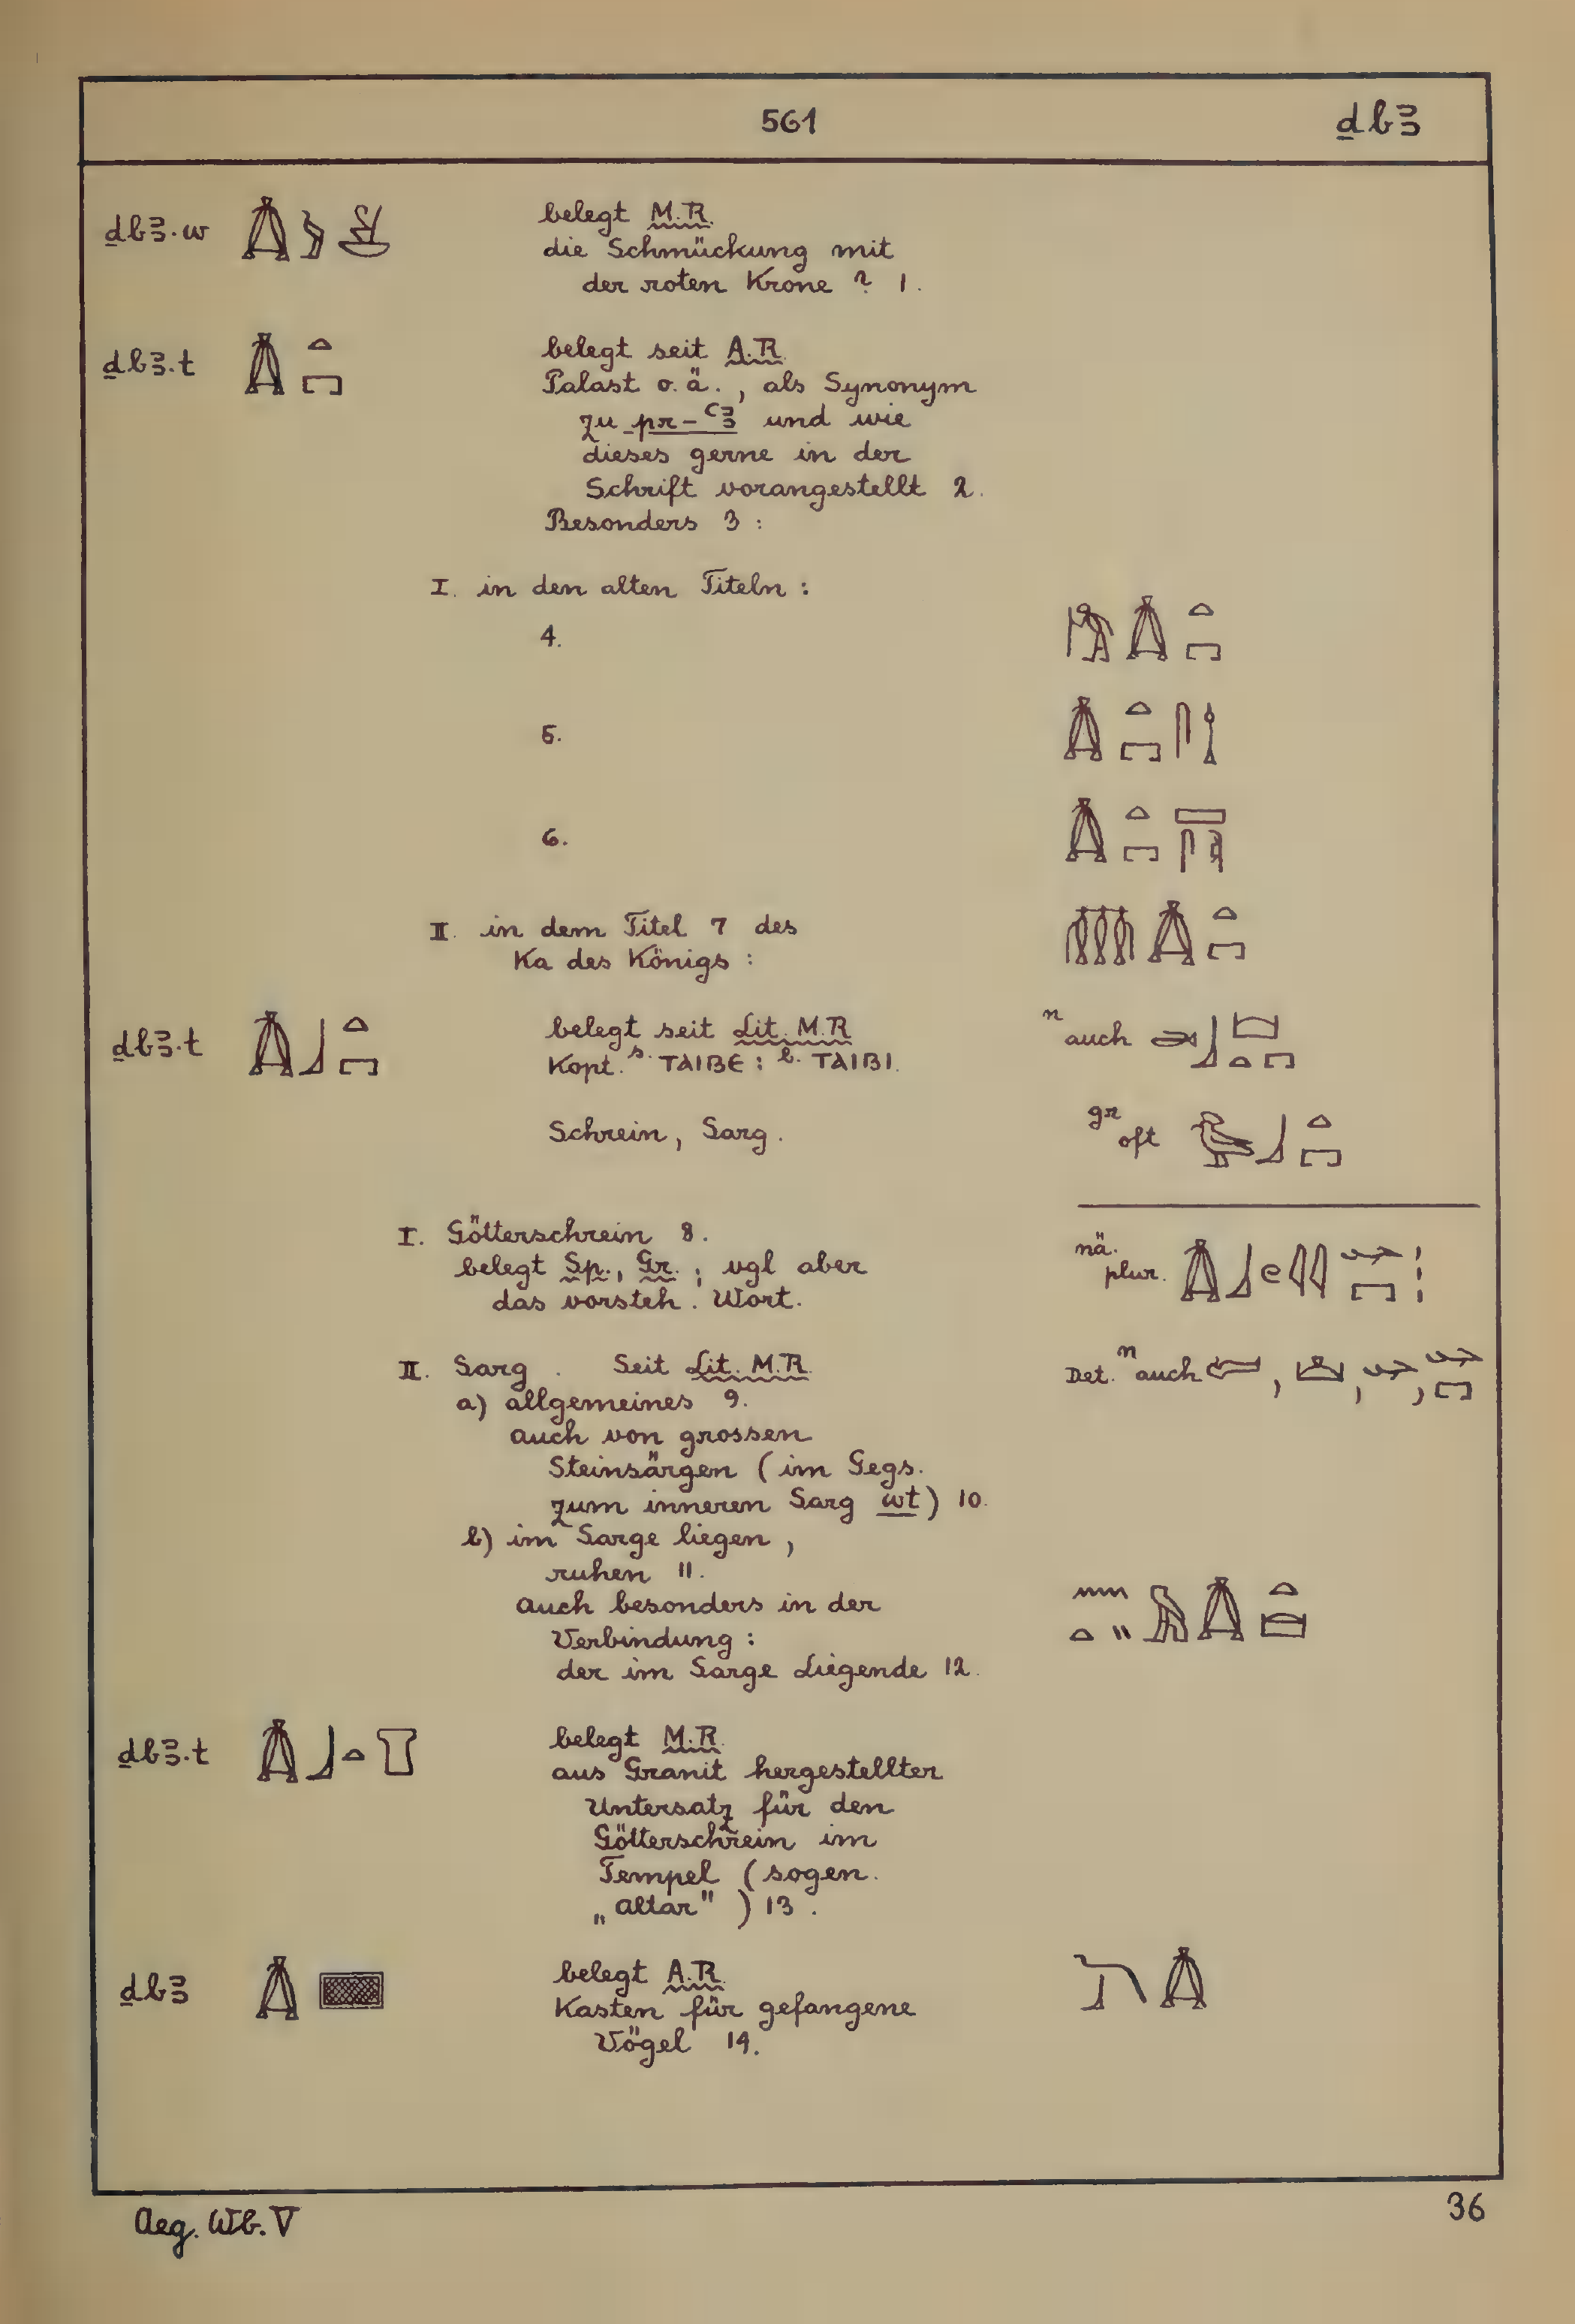 561 ḏbꜣ
ḏbꜣ.w belegt M.R.
die Schmückung mit
der roten Krone ? 1.
ḏbꜣ.t belegt seit A.R.
Palast o.ä., als Synonym
zu pr-ꜥꜣ und wie
dieses gerne in der
Schrift vorangestellt 2.
Besonders 3 :
I. in den alten Titeln :
4.
5.
6.
II. in dem Titel 7 des
Ka des Königs :
ḏbꜣ.t belegt seit Lit. M.R. n auch
Kopt. s. ⲧⲁⲓⲃⲉ : b. ⲧⲁⲓⲃⲓ.
Schrein, Sarg. gr oft
I. Götterschrein 8. nä. plur.
belegt Sp., Gr. ; vgl aber
das vorsteh. Wort.
II. Sarg. Seit Lit. M.R. Det. n auch , , ,
a) allgemeines 9.
auch von grossen
Steinsärgen (im Gegs.
zum inneren Sarg wt) 10.
b) im Sarge liegen,
ruhen 11.
auch besonders in der
Verbindung :
der im Sarge Liegende 12.
ḏbꜣ.t belegt M.R.
aus Granit hergestellter
Untersatz für den
Götterschrein im
Tempel (sogen.
„Altar") 13.
ḏbꜣ belegt A.R.
Kasten für gefangene
Vögel 14.
Aeg. Wb. V 36